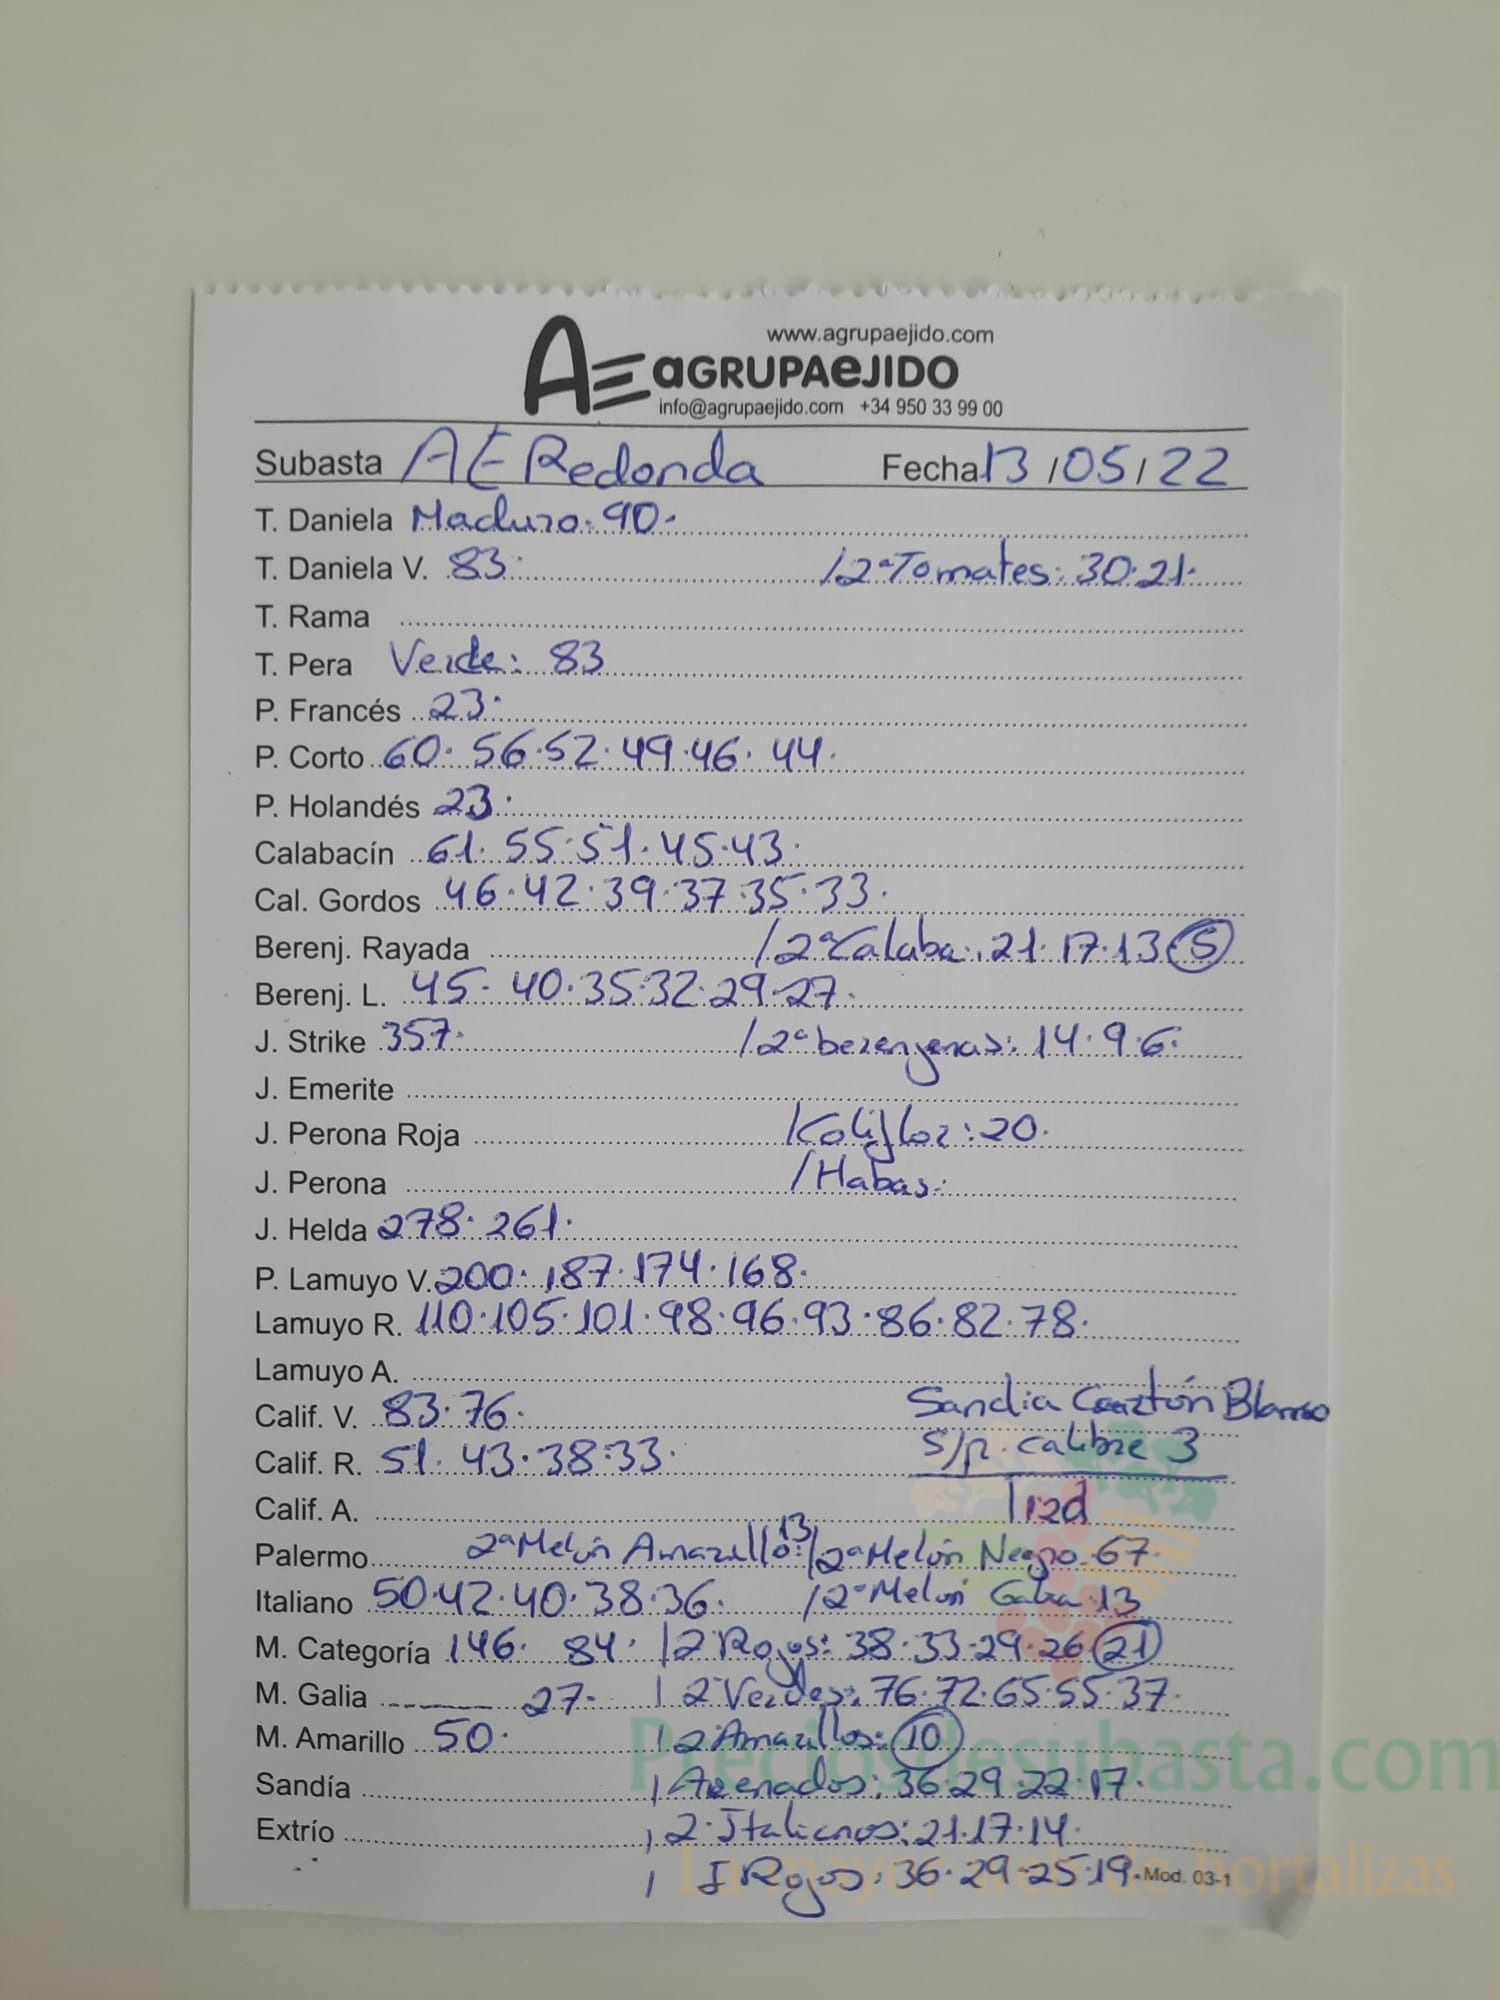 www.agrupaejido.com
AE aGRUPAeJIDO
info@agrupaejido.com +34 950 33 99 00
Subasta AE Redonda Fecha 13/05/22
T. Daniela Maduro. 90.
T. Daniela V. 83. /2ª Tomates: 30.21.
T. Rama
T. Pera Verde: 83
P. Francés 23.
P. Corto 60. 56.52.49.46. 44.
P. Holandés 23.
Calabacín 61. 55.51.45.43.
Cal. Gordos 46.42.39.37.35.33.
Berenj. Rayada /2ª Calaba: 21.17.13 (5)
Berenj. L. 45. 40.35.32.29.27.
J. Strike 357. /2ª berenjenas: 14.9.6.
J. Emerite
J. Perona Roja /Coliflor: 20.
J. Perona /Habas:
J. Helda 278. 261.
P. Lamuyo V. 200. 187.174.168.
Lamuyo R. 110.105.101.98.96.93.86.82.78.
Lamuyo A.
Calif. V. 83.76. Sandia Blanco
Calif. R. 51. 43.38.33. S/p. calibre 3
Calif. A.
Palermo 2ª Melón Amarillo: 13 /2ª Melón Negro. 67.
Italiano 50.42.40.38.36. /2ª Melon Galia 13
M. Categoría 146. 84. /2 Rojos: 38.33.29.26 (21)
M. Galia 27. / 2 Verdes: 76.72.65.55.37.
M. Amarillo 50. / 2 Amarillos: (10)
Sandía / Arenados: 36.29.22.17.
Extrío / 2. Italianos: 21.17.14.
/ I Rojos: 36.29.25.19. Mod. 03-1
Preciosdesubasta.com
La mayor web de hortalizas